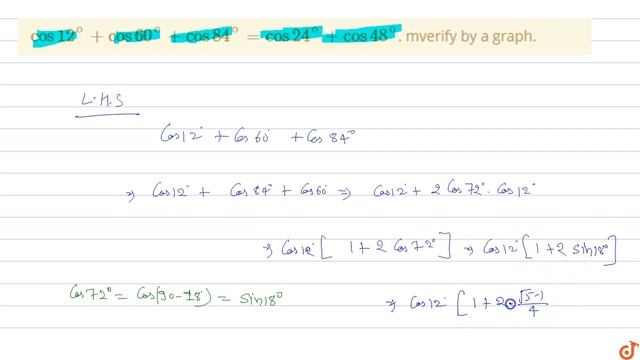 cos 12° + cos 60° + cos 84° = cos 24° + cos 48°. mverify by a graph.
L.H.S
Cos12° + Cos 60° + Cos 84°
⇒ Cos12° + Cos 84° + Cos60° ⇒ Cos12° + 2 Cos 72°. Cos 12°
⇒ Cos 12° [ 1 + 2 Cos 72° ] ⇒ Cos 12° [ 1 + 2 Sin 18° ]
Cos 72° = Cos(90-18°) = Sin18°
⇒ Cos 12° [ 1 + 2 √5-1/4
doubtnut